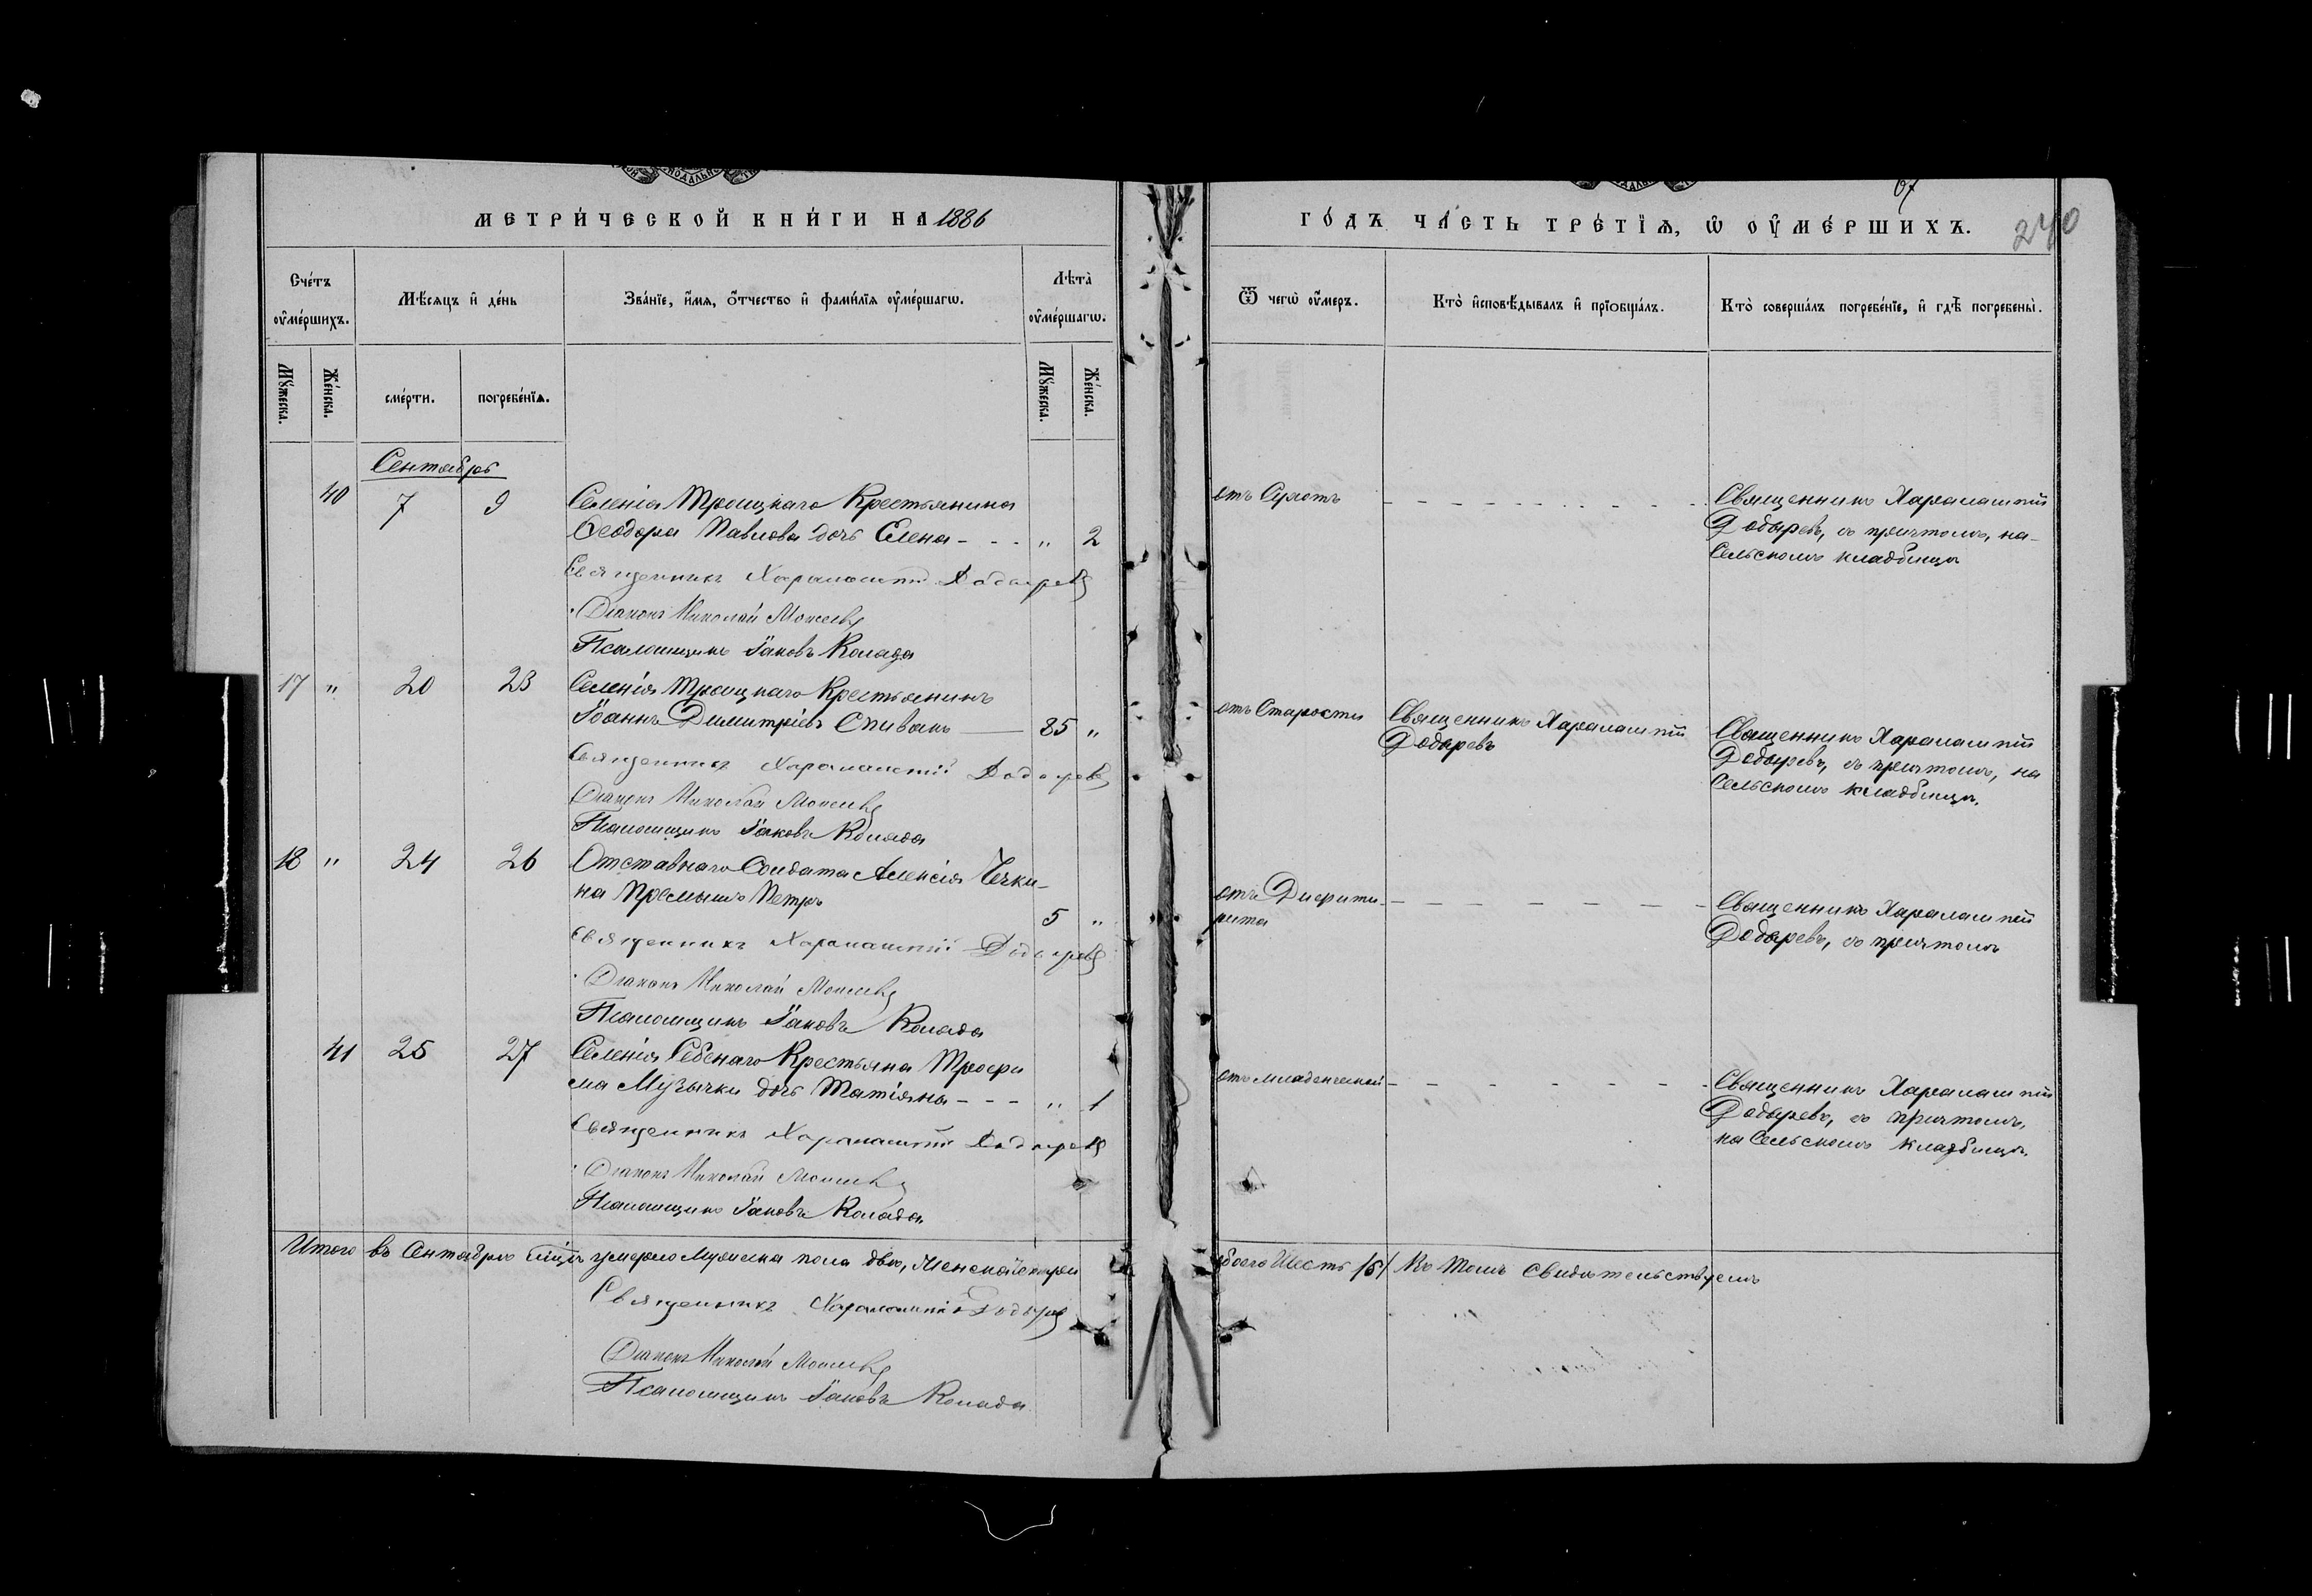 МЕТРИ́ЧЕСКОЙ КНИ́ГИ НА 1886
ГО́ДЪ ЧА́СТЬ ТРЕ́ТІѦ, Ѡ ОУ҆МЕ́РШИХЪ.
67
240
Сче́тъ оу҆ме́ршихъ.
Мѣ́сяцъ и҆ де́нь
Зва́нїе, и҆́мя, ѻ҆́тчество и҆ фами́лїя оу҆ме́ршагѡ.
Лѣ́та оу҆ме́ршагѡ.
Ѿ чегѡ̀ оу҆́меръ.
Кто̀ и҆сповѣ́дывалъ и҆ прїобща́лъ.
Кто̀ соверша́лъ погребе́нїе, и҆ гдѣ̀ погребены̀.
Мꙋ́жеска.
Же́нска.
сме́рти.
погребе́нїя.
Мꙋ́жеска.
Же́нска.
Сентябрь
40 7 9 Селенія Троицкаго Крестьянина
Ѳеодора Павлова дочь Елена - - - „ 2
Священникъ Харалампій Додыревъ
Діаконъ Николай Моисеевъ
Псаломщикъ Іаковъ Колада
отъ Сухотъ
Священникъ Харалампій
Додыревъ, съ причтомъ, на-
Сельскомъ кладбищѣ
17 „ 20 23 Селенія Троицкаго Крестьянинъ
Іоаннъ Димитріевъ Спивакъ — 85 „
Священникъ Харалампій Додыревъ
Діаконъ Николай Моисеевъ
Псаломщикъ Іаковъ Колада
отъ Старости
Священникъ Харалампій
Додыревъ
Священникъ Харалампій
Додыревъ, съ причтомъ, на
Сельскомъ кладбищѣ.
18 „ 24 26 Отставнаго Солдата Алексія Чечки-
на Пріемышъ Петръ
5 „
Священникъ Харалампій Додыревъ
Діаконъ Николай Моисеевъ
Псаломщикъ Іаковъ Колада
отъ Диѳити-
рита
Священникъ Харалампій
Додыревъ, съ причтомъ
41 25 27 Селенія Крестьяна Трофи
ма Музычки дочь Татіяна - - - „ 1
Священникъ Харалампій Додыревъ
Діаконъ Николай Моисеевъ
Псаломщикъ Іаковъ Колада
отъ младенческой
Священникъ Харалампій
Додыревъ, съ причтомъ,
на Сельскомъ кладбищѣ.
Итого въ Сентябрѣ мцѣ умерло Мужеска пола два, Женскаго четыри
обоего Шесть /6/ Въ томъ Свидѣтельствуемъ
Священникъ Харалампій Додыревъ
Діаконъ Николай Моисеевъ
Псаломщикъ Іаковъ Колада